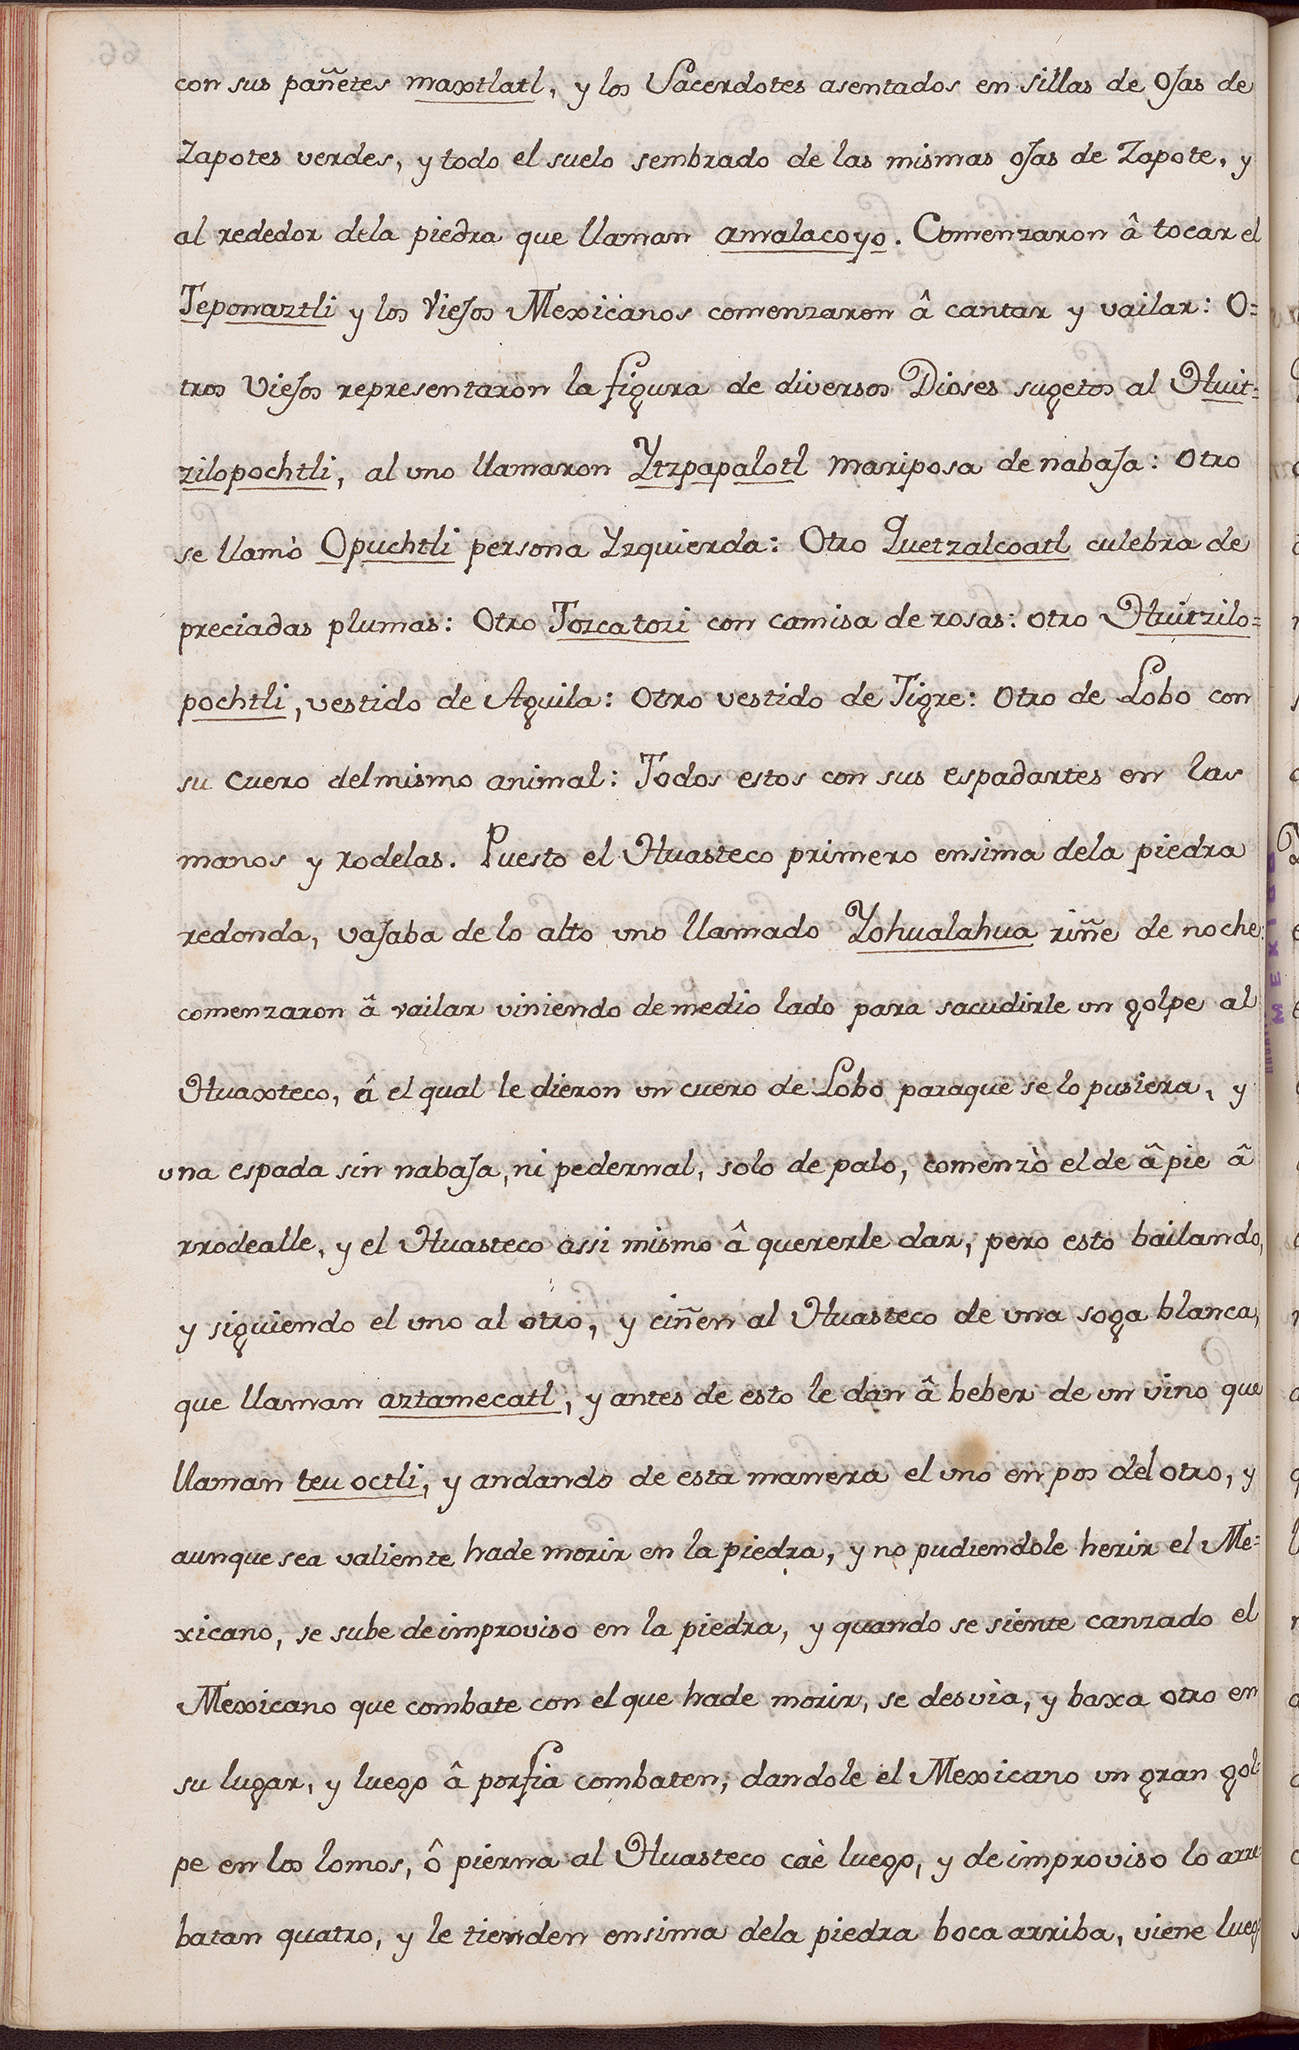 con sus pañetes maxtlatl, y los Sacerdotes asentados en sillas de ojas de
Zapotes verdes, y todo el suelo sembrado de las mismas ojas de Zapote, y
al rededor dela piedra que llaman amalacoyo. Comenzaron â tocar el
Teponaztli y los Viejos Mexicanos comenzaron â cantar y vailar: O=
tros Viejos representaron la figura de diversos Dioses sugetos al Huit=
zilopochtli, al uno llamaron Ytzpapalotl mariposa de nabaja: Otro
se llamò Opuchtli persona Yzquierda: Otro Quetzalcoatl culebra de
preciadas plumas: Otro Tozcatozi con camisa de rosas: otro Huitzilo=
pochtli, vestido de Aguila: Otro vestido de Tigre: Otro de Lobo con
su cuero delmismo animal: Todos estos con sus espadartes en las
manos y rodelas. Puesto el Huasteco primero ensima dela piedra
redonda, vajaba de lo alto uno llamado Yohualahua riñe de noche:
comenzaron â vailar viniendo de medio lado para sacudirle un golpe al
Huaxteco, â el qual le dieron un cuero de Lobo paraque se lo pusiera, y
una espada sin nabaja, ni pedernal, solo de palo, comenzò el de â pie â
rrodealle, y el Huasteco assi mismo â quererle dar, pero esto bailando,
y siguiendo el uno al otro, y ciñen al Huasteco de una soga blanca,
que llaman aztamecatl, y antes de esto le dan â beber de un vino que
llaman teu octli, y andando de esta manera el uno en pos del otro, y
aunque sea valiente hade morir en la piedra, y no pudiendole herir el Me=
xicano, se sube de improviso en la piedra, y quando se siente canzado el
Mexicano que combate con el que hade morir, se desvia, y baxa otro en
su lugar, y luego â porfia combaten, dandole el Mexicano un gran gol-
pe en los lomos, ô pierna al Huasteco caè luego, y de improviso lo arre-
batan quatro, y le tienden ensima dela piedra boca arriba, viene luego